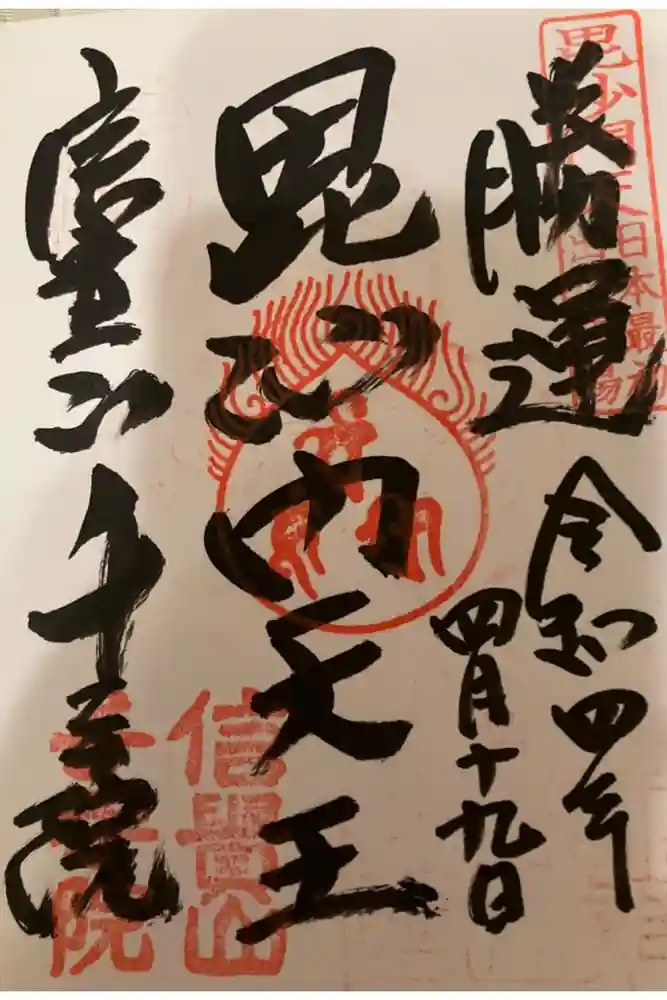 毘沙門天
日本最初
勝運
令和四年
四月十九日
毘沙門天王
信貴山
千手院
信貴山
千手院